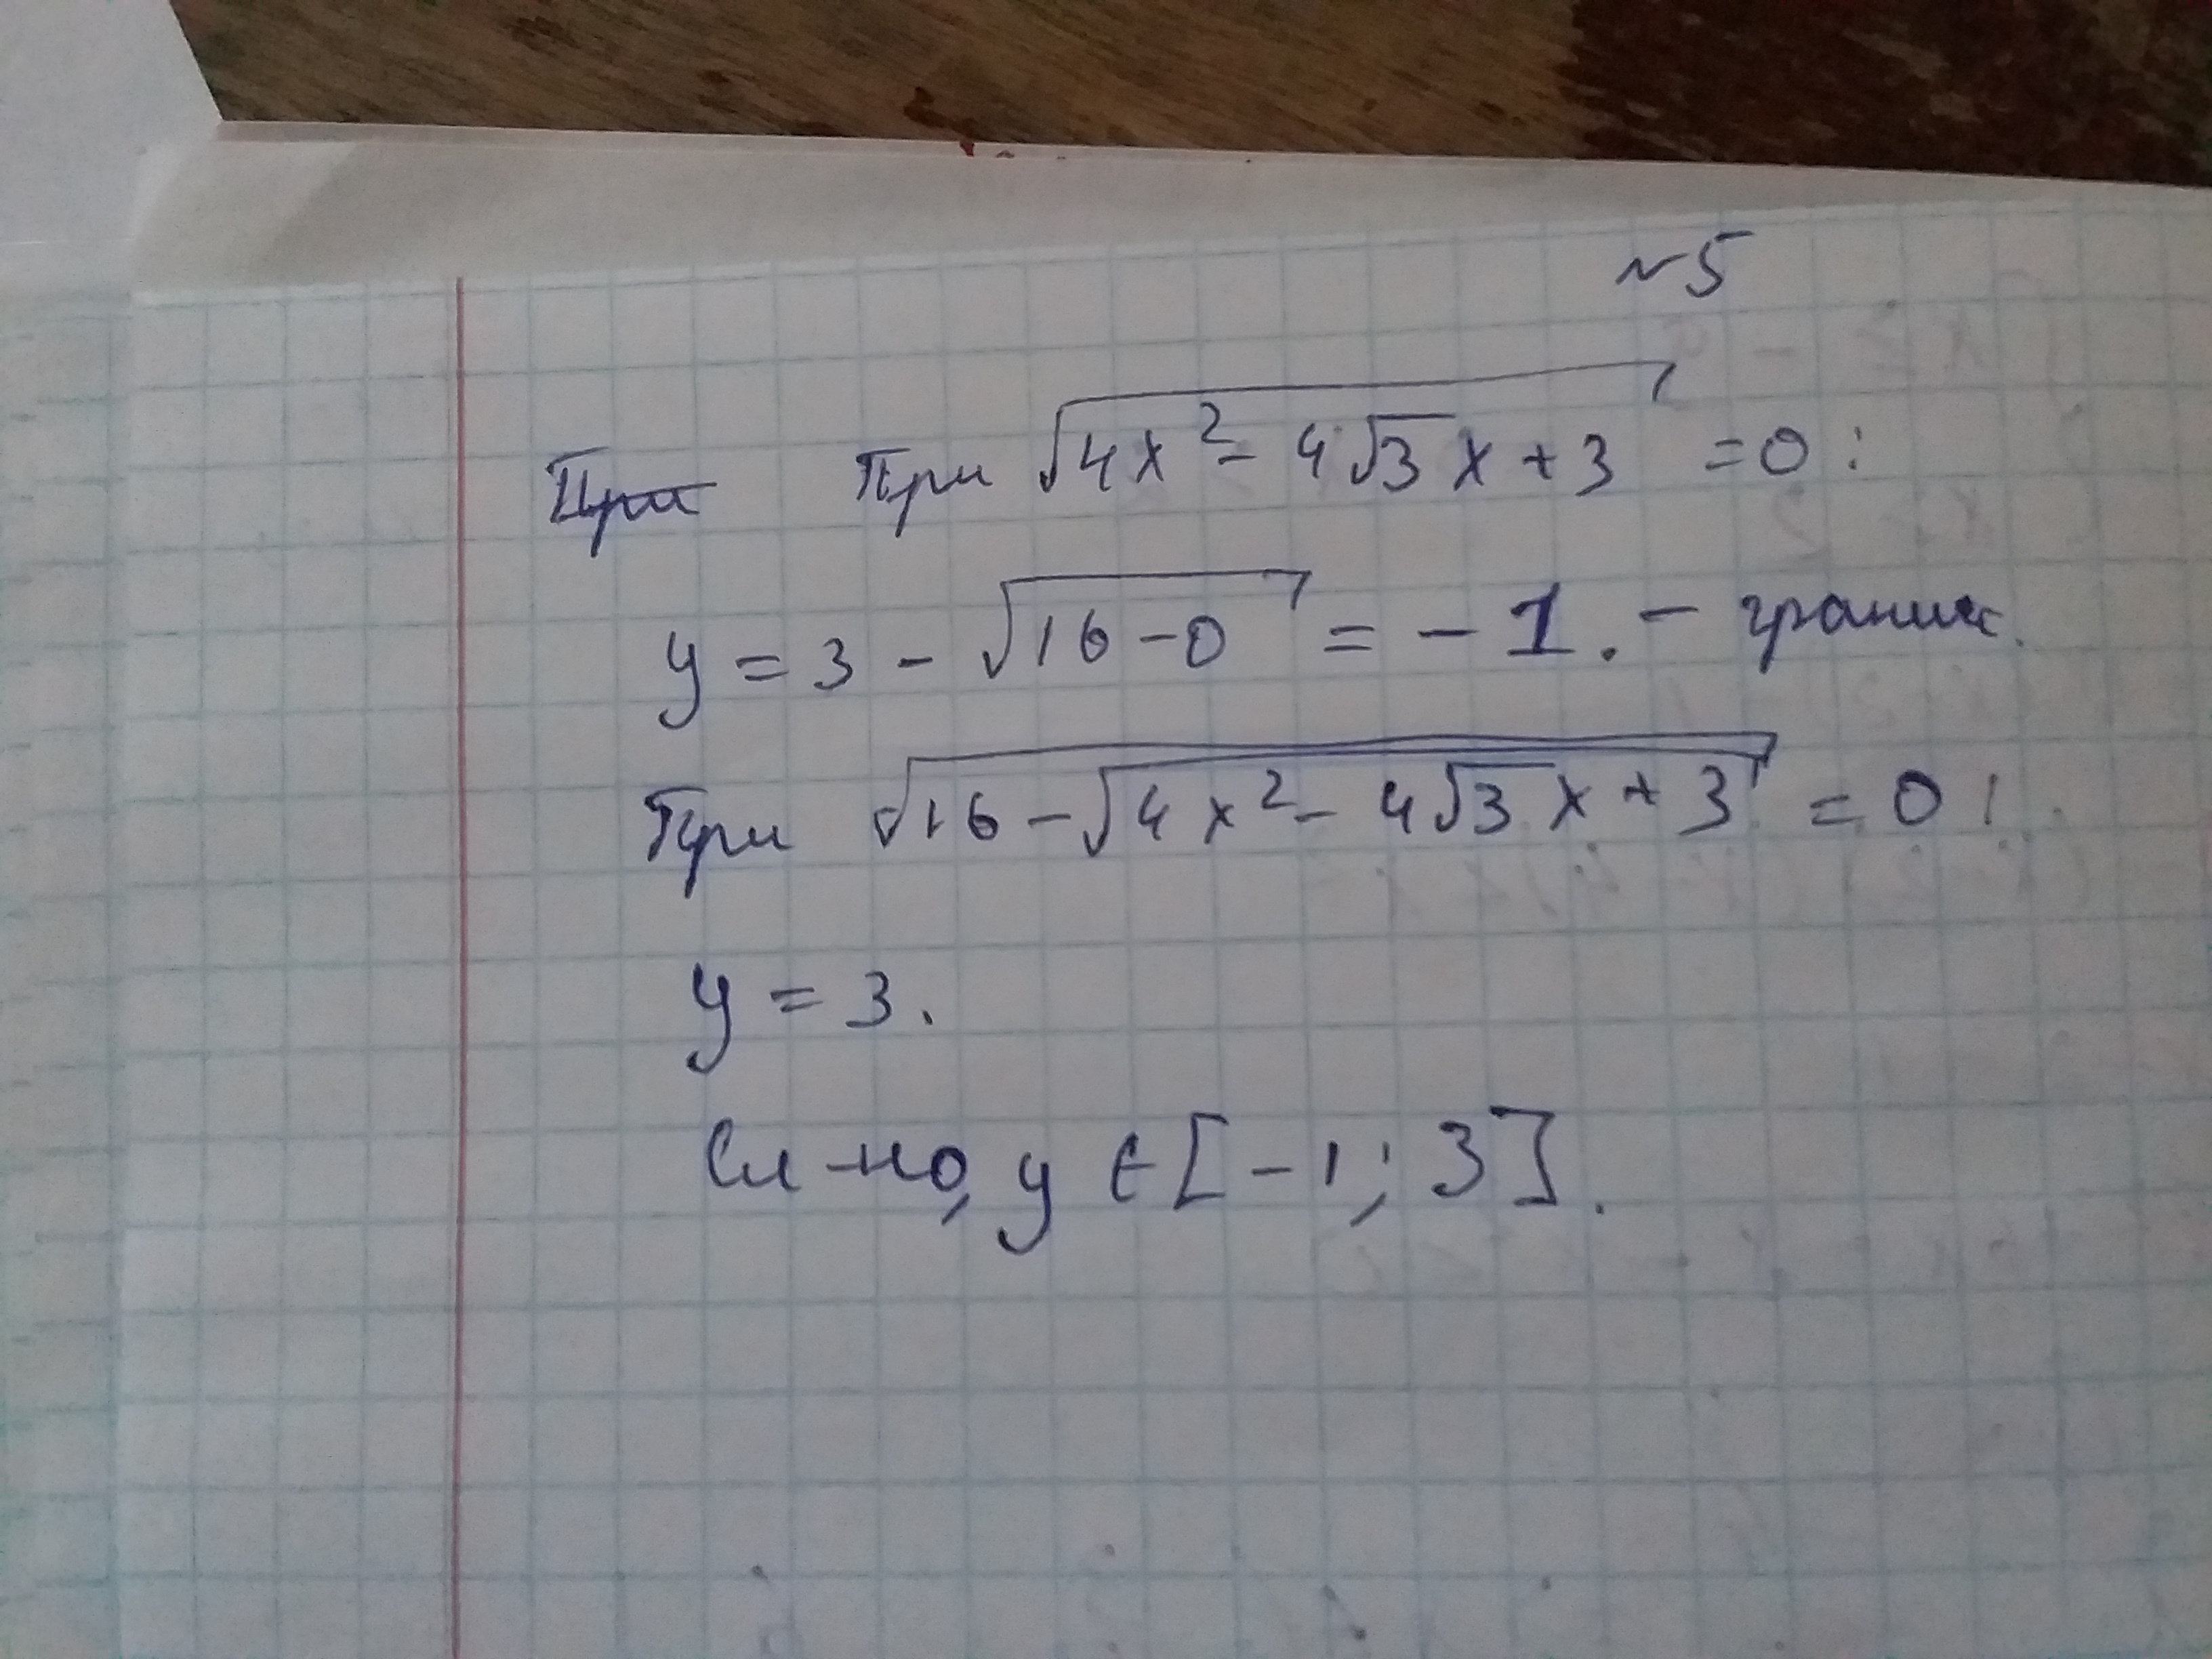 №5
При При √(4x² - 4√3 x + 3) = 0 :
y = 3 - √(16 - 0) = - 1. - границ.
При √(16 - √(4x² - 4√3 x + 3)) = 0 :
y = 3.
Сл-но, y ∈ [-1; 3].